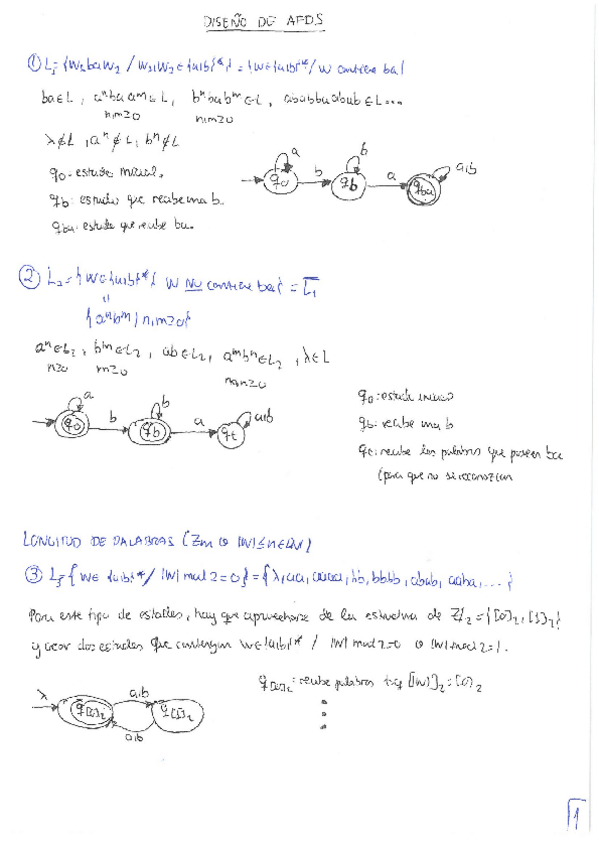 DISEÑO DE AFDS
① L₁={w₁baw₂ / w₁,w₂∈{a,b}*} = {w∈{a,b}*/ w contiene ba}
ba∈L, aⁿbaaᵐ∈L, bⁿbabᵐ∈L, ababbaabab∈L...
n,m≥0 n,m≥0
λ∉L, aⁿ∉L, bⁿ∉L
q₀: estado inicial.
q_b: estado que recibe una b.
q_ba: estado que recibe ba.
a b a,b
q₀ b q_b a q_ba
② L₂={w∈{a,b}*/ w NO contiene ba} = L̅₁
{aⁿbᵐ / n,m≥0}
aⁿ∈L₂, bᵐ∈L₂, ab∈L₂, aᵐbⁿ∈L₂, λ∈L
n≥0 m≥0 n,m≥0
a b a,b
q₀ b q_b a q_t
q₀: estado inicial
q_b: recibe una b
q_t: recibe las palabras que poseen ba
(para que no se reconozcan
LONGITUD DE PALABRAS
③ L₃={w∈{a,b}*/ |w| mod 2=0} = {λ,aa,aaaa,bb,bbbb,abab,aaba,...}
Para este tipo de estados, hay que aprovecharse de la estructura de Z/₂={[0]₂,[1]₂}
y crear dos estados que contengan w∈{a,b}* / |w| mod 2=0 o |w| mod 2=1.
q[0]₂: recibe palabras tq [|w|]₂=[0]₂
λ a,b
q[0]₂ q[1]₂
a,b
1